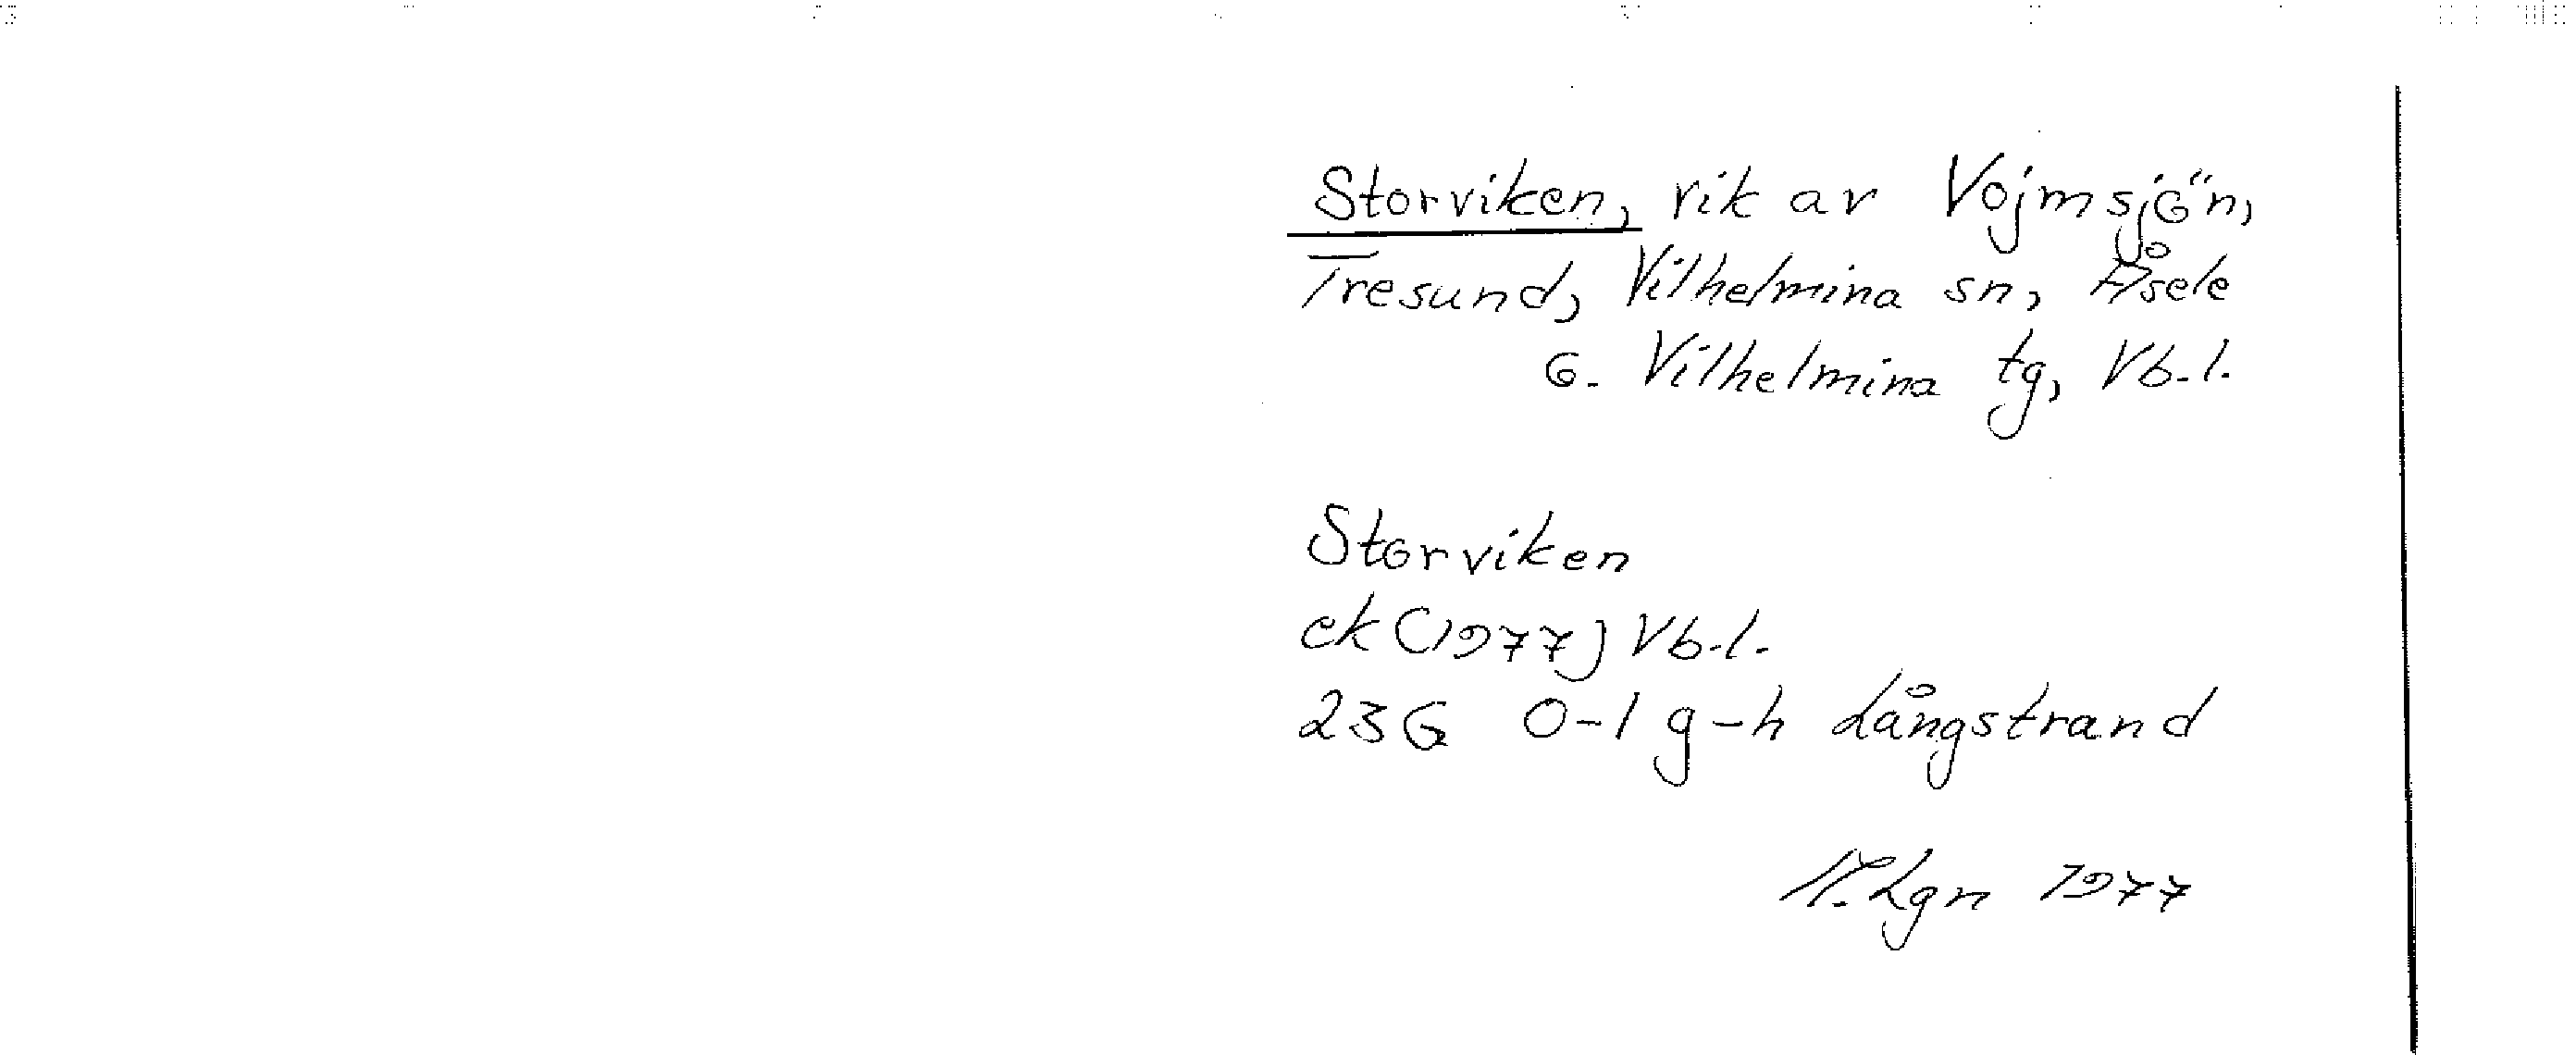 Storviken, vik av Vojmsjön,
Tresund, Vilhelmina sn, Åsele
o. Vilhelmina tg, Vb.l.
Storviken
ek (1977) Vb.l.
23G 0-1 g-h Långstrand
Lgn 1977